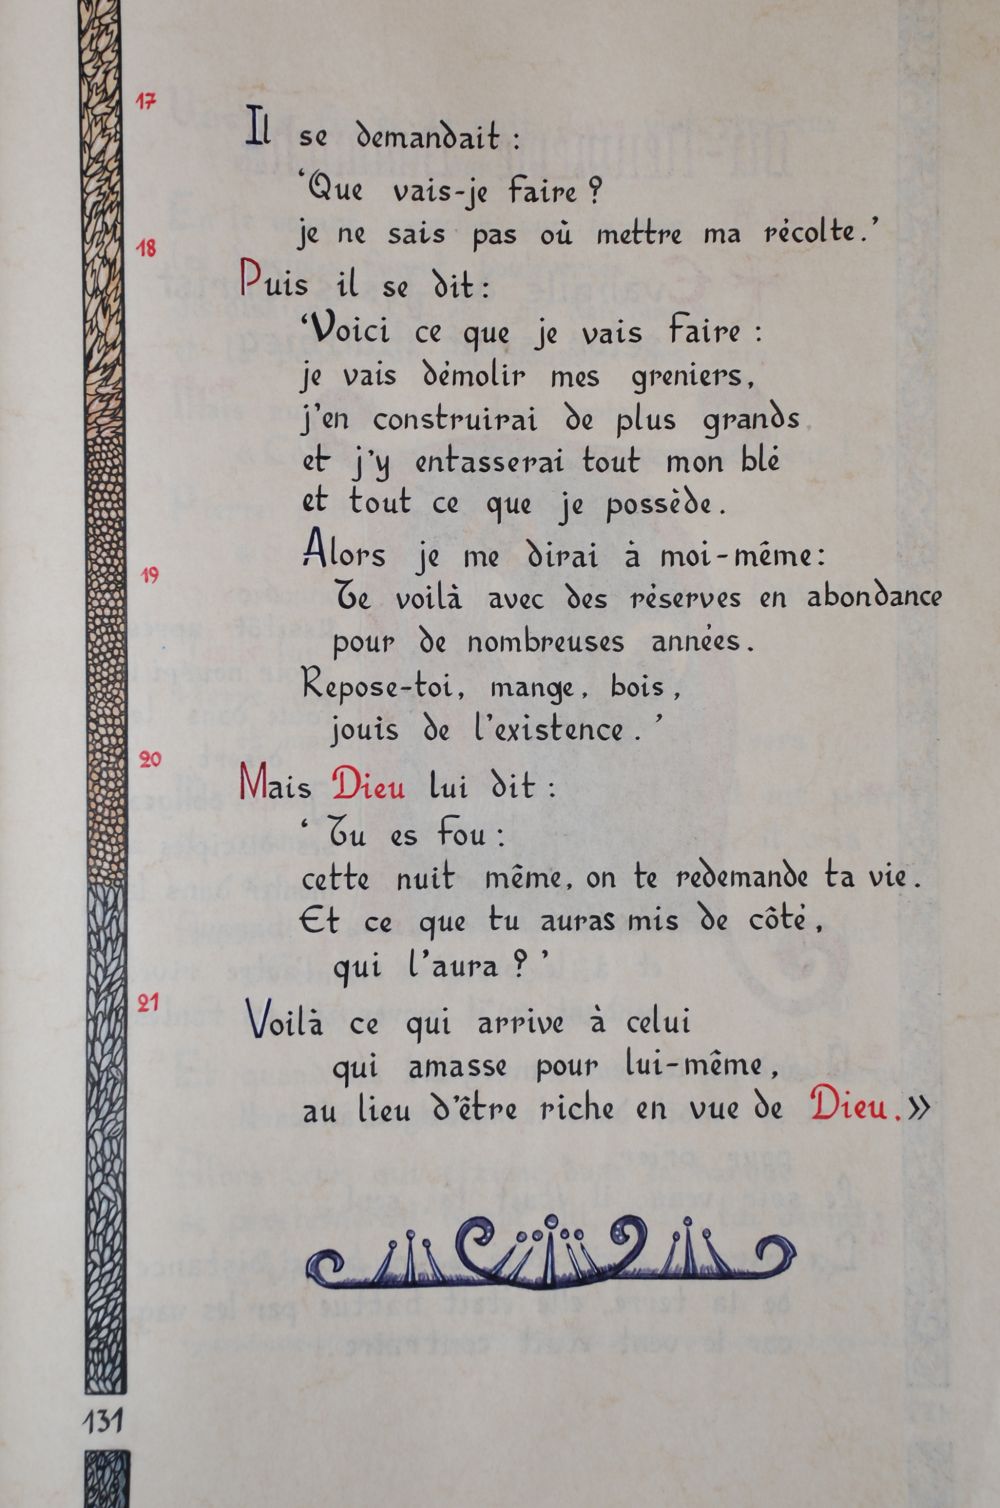 17
Il se demandait :
‘Que vais-je faire ?
je ne sais pas où mettre ma récolte.’
18
Puis il se dit :
‘Voici ce que je vais faire :
je vais démolir mes greniers,
j’en construirai de plus grands
et j’y entasserai tout mon blé
et tout ce que je possède.
Alors je me dirai à moi-même :
19
Te voilà avec des réserves en abondance
pour de nombreuses années.
Repose-toi, mange, bois,
jouis de l’existence.’
20
Mais Dieu lui dit :
‘Tu es fou :
cette nuit même, on te redemande ta vie.
Et ce que tu auras mis de côté,
qui l’aura ?’
21
Voilà ce qui arrive à celui
qui amasse pour lui-même,
au lieu d’être riche en vue de Dieu.»
131